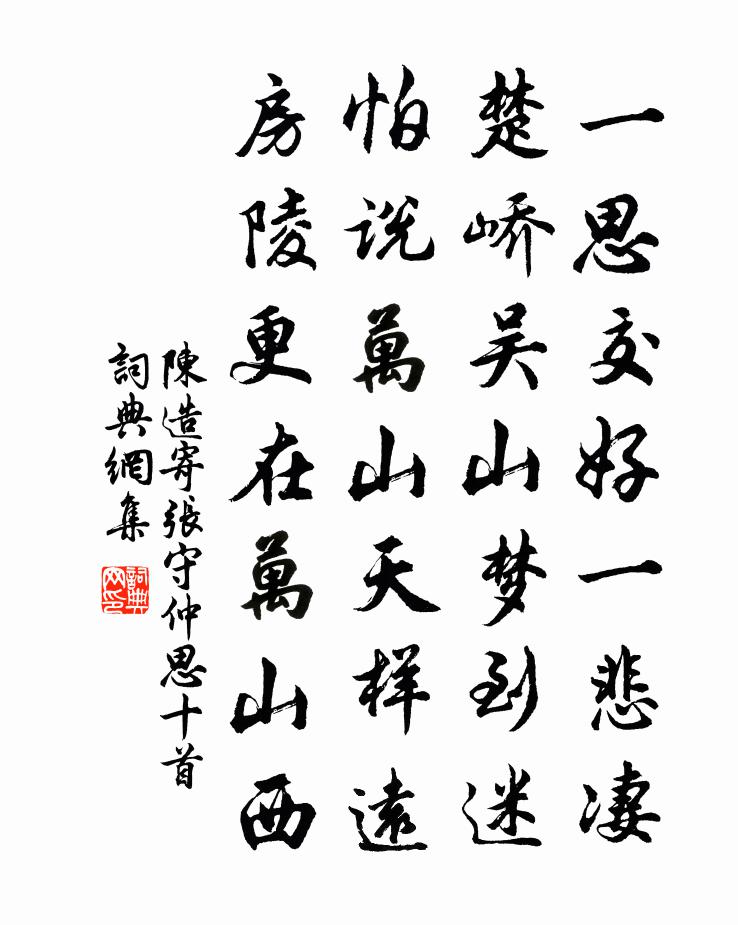 一思交好一悲凄
楚峤吴山梦到迷
怕说萬山天样遠
房陵更在萬山西
陳造寄張守仲思十首
詞典網集
詞典
网印